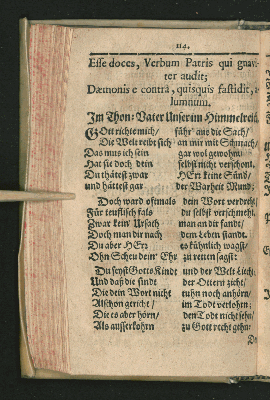 114.
Esse doces, Verbum Patris qui gnavi-
ter audit;
Dæmonis e contrà, quisquis fastidit, a-
lumnum.
Im Thon: Vater Unser im Himmelreich.
Gott richte mich / führ' aus die Sach /
Die Welt reibt sich an mir mit Schmach /
Das mus ich sein gar wol gewohnt
Hat sie doch dein selbst nicht verschont.
Du thätest zwar HErr keine Sünd /
und hättest gar der Warheit Mund;
Doch ward oftmals dein Wort verdreht
Für teuflisch fals du selbst verschmeht.
Zwar kein Ursach man an dir fandt /
Doch man dir nach dem Leben standt.
Du aber HErr es kühnlich wagst /
Ohn Scheu dein' Ehr zu retten sagst:
Du seyst Gottes Kindt und der Welt Liecht;
Und daß die sindt der Ottern zicht /
Die dein Wort nicht ruhn noch anhörn /
Alschon gericht / im Todt verlohrn;
Die es aber hörn / den Todt nicht sehn /
Als ausserkohrn zu Gott recht gehn: